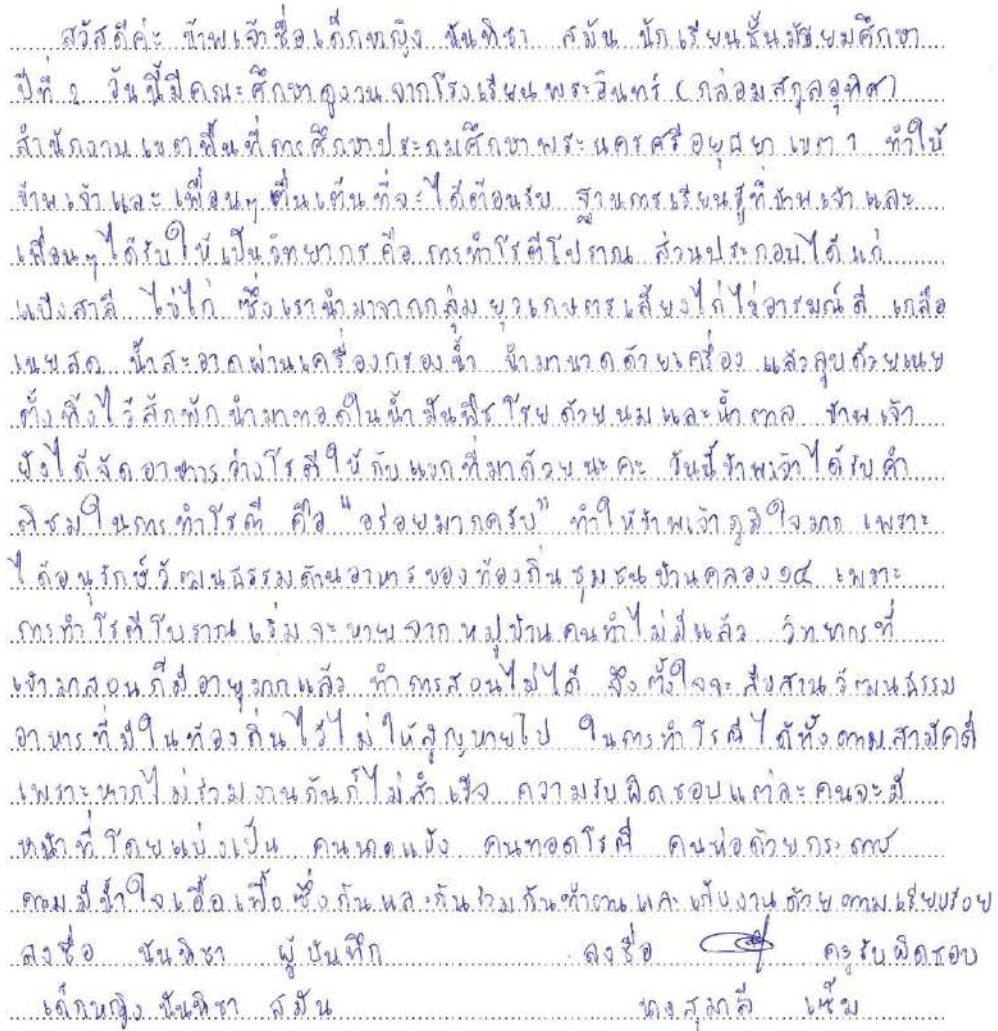 สวัสดีค่ะ ข้าพเจ้าชื่อเด็กหญิง นันทิชา สมัน นักเรียนชั้นมัธยมศึกษา
ปีที่ 2 วันนี้มีคณะศึกษาดูงานจากโรงเรียนพระอินทร์ (กล่อมสกุลอุทิศ)
สำนักงานเขตพื้นที่การศึกษาประถมศึกษาพระนครศรีอยุธยา เขต 1 ทำให้
ข้าพเจ้าและเพื่อนๆ ตื่นเต้นที่จะได้ต้อนรับ ฐานการเรียนรู้ที่ข้าพเจ้าและ
เพื่อนๆ ได้รับให้เป็นวิทยากร คือ การทำโรตีโบราณ ส่วนประกอบได้แก่
แป้งสาลี ไข่ไก่ ซึ่งเรานำมาจากกลุ่มยุวเกษตรเลี้ยงไก่ไข่อารมณ์ดี เกลือ
เนยสด น้ำสะอาดผ่านเครื่องกรองน้ำ นำมานวดด้วยเครื่อง แล้วลูบด้วยเนย
ตั้งทิ้งไว้สักพักนำมาทอดในน้ำมันพืช โรยด้วยนมและน้ำตาล ข้าพเจ้า
ยังได้จัดอาหารว่างโรตีให้กับแขกที่มาด้วยนะคะ วันนี้ข้าพเจ้าได้รับคำ
ติชมในการทำโรตี คือ "อร่อยมากครับ" ทำให้ข้าพเจ้าภูมิใจมาก เพราะ
ได้อนุรักษ์วัฒนธรรมด้านอาหารของท้องถิ่นชุมชนบ้านคลอง ๑๔ เพราะ
การทำโรตีโบราณเริ่มจะหายจากหมู่บ้าน คนทำไม่มีแล้ว วิทยากรที่
เข้ามาสอนก็มีอายุมากแล้ว ทำการสอนไม่ได้ จึงตั้งใจจะสืบสานวัฒนธรรม
อาหารที่มีในท้องถิ่นไว้ไม่ให้สูญหายไป ในการทำโรตีได้ทั้งความสามัคคี
เพราะหากไม่ร่วมงานกันก็ไม่สำเร็จ ความรับผิดชอบแต่ละคนจะมี
หน้าที่โดยแบ่งเป็น คนนวดแป้ง คนทอดโรตี คนห่อด้วยกระดาษ
ความมีน้ำใจเอื้อเฟื้อซึ่งกันและกันร่วมกันทำงานและเก็บงานด้วยความเรียบร้อย
ลงชื่อ นันทิชา ผู้บันทึก ลงชื่อ ครูรับผิดชอบ
เด็กหญิง นันทิชา สมัน นางสุมาลี